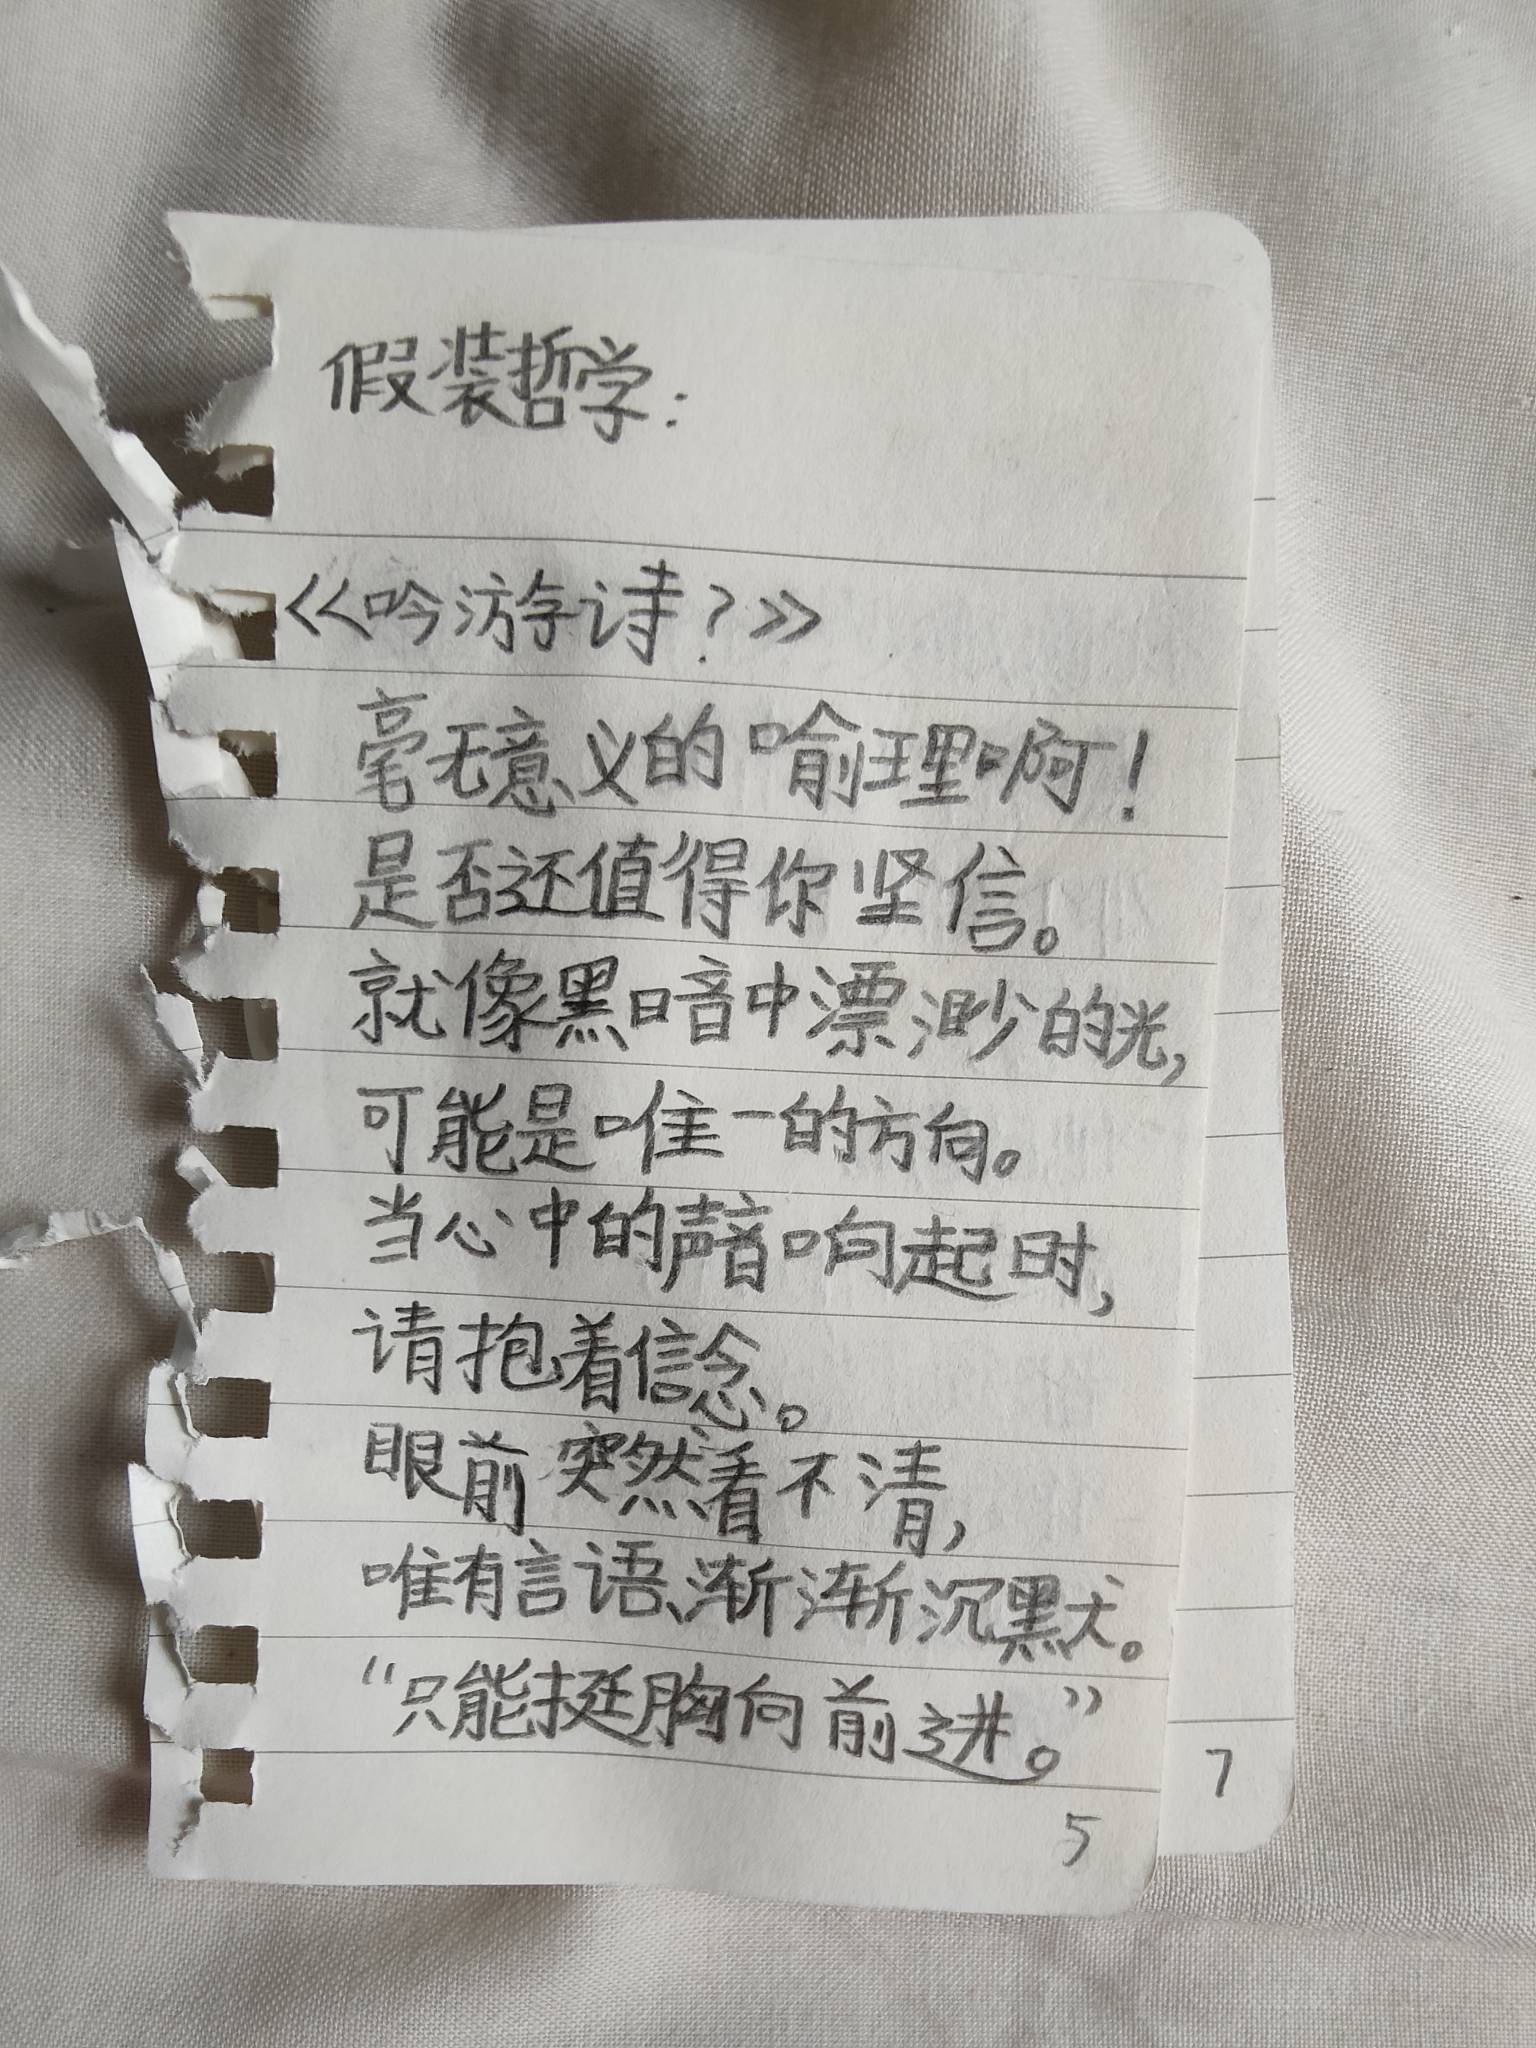 假装哲学:
《吟游诗?》
毫无意义的喻理啊!
是否还值得你坚信。
就像黑暗中漂渺的光,
可能是唯一的方向。
当心中的声音响起时,
请抱着信念。
眼前突然看不清,
唯有言语渐渐沉默。
“只能挺胸向前进。”
5
7